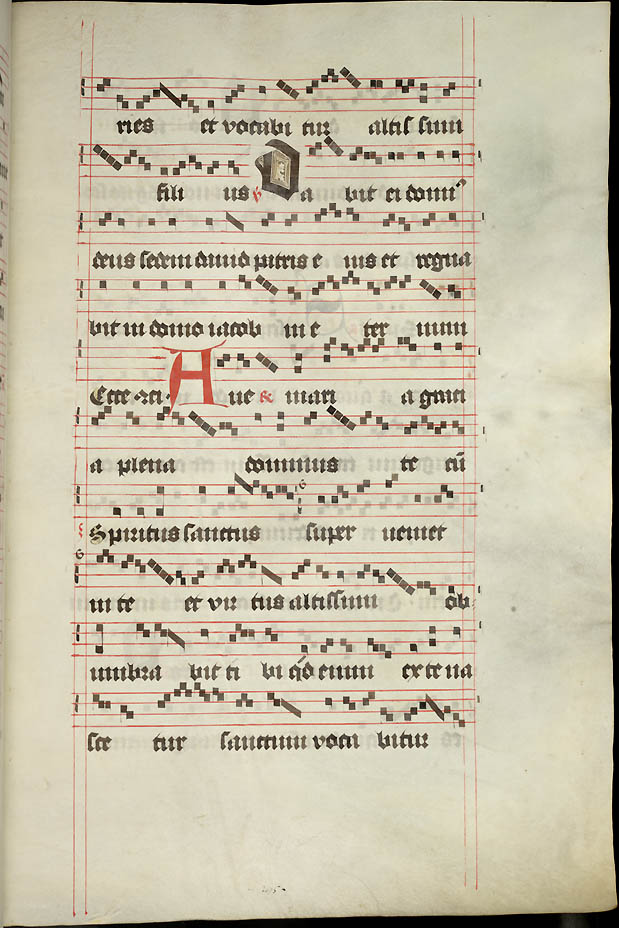 ries et vocabi tur altis simi
fili us v Da bit ei domin9
deus sedem david patris e ius et regna
bit in domo iacob in e ter num
Ecce · Aue R mari a grati
a plena dominus te cū
v Spiritus sanctus super veniet
in te et vir tus altissimi ob
umbra bit ti bi qd enim ex te na
sce tur sanctum voca bitur